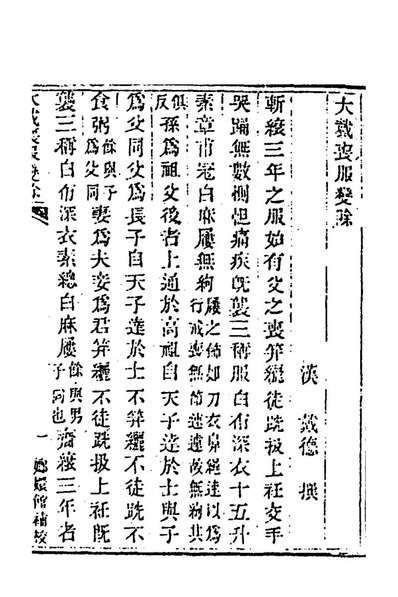 大戴喪服變除
漢　戴德　撰
斬縗三年之服始有父之喪笄纚徒跣扱上衽交手
哭踊無數惻怛痛疾旣襲三稱服白布深衣十五升
素章甫冠白麻屨無絇屨之飾如刀衣鼻繩連以爲行戒喪無節速遽故無絇其
俱反孫爲祖父後者上通於高祖自天子達於士與子
爲父同父爲長子自天子達於士不笄纚不徒跣不
食粥餘與子爲父同妻爲夫妾爲君笄纚不徒跣扱上衽旣
襲三稱白布深衣素總白麻屨餘與男子同也齋縗三年者
大戴喪服變除
一
嫏嬛僊館校